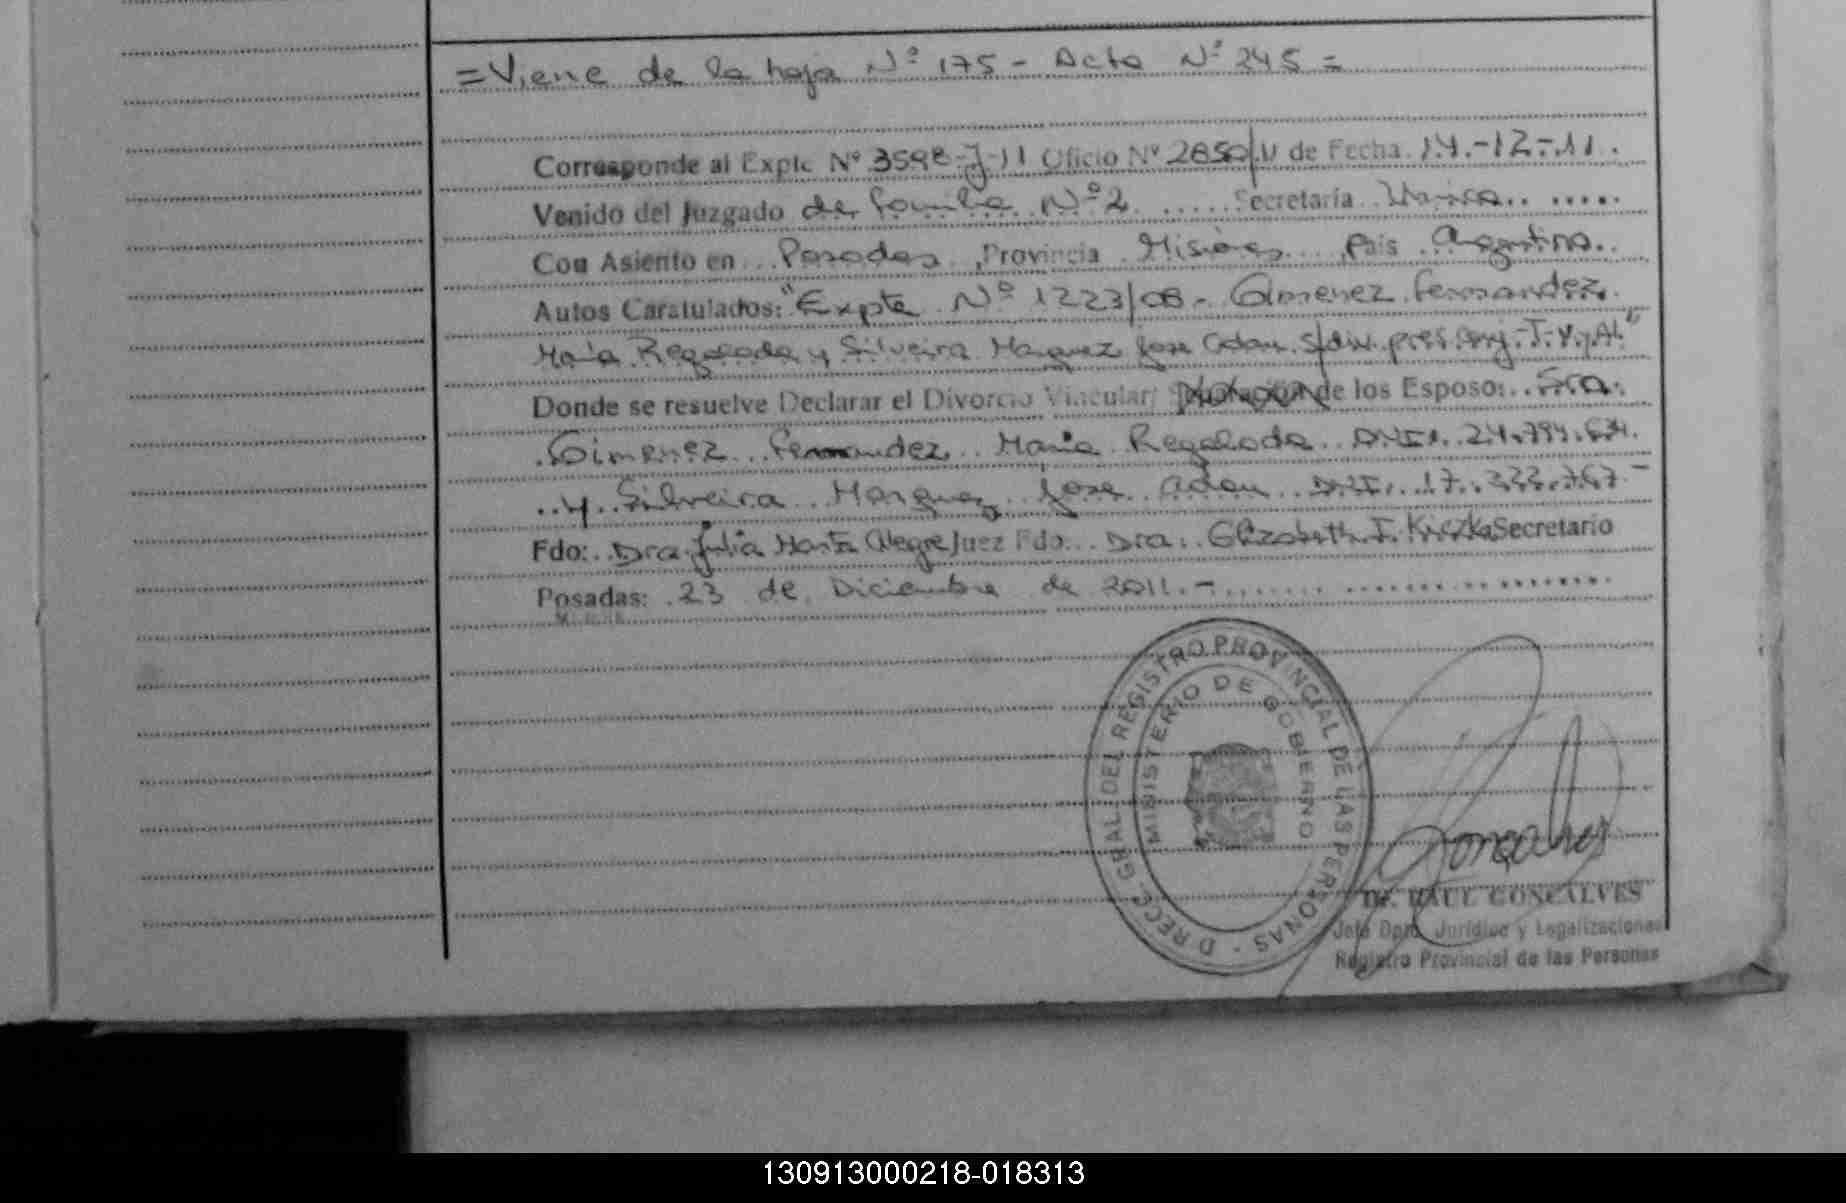 = Viene de la hoja Nº 175 - Acta Nº 245 =
Corresponde al Expte Nº 3598-J-11 Oficio Nº 2850/11 de Fecha 14.-12-.11.
Venido del Juzgado de familia Nº 2 Secretaría Unica
Con Asiento en Posadas, Provincia Misiones, País Argentina
Autos Caratulados: "Expte Nº 1223/08 - Gimenez Fernandez
María Regalada y Silveira Marquez Jose Adan s/div. pres. conj.- T. V. y Al."
Donde se resuelve Declarar el Divorcio Vincular/ de los Esposo: Sra.
Gimenez Fernandez Maria Regalada D.N.I. 24.794.634.
y Silveira Marquez Jose Adan D.N.I. 17.333.767.-
Fdo: Dra. Julia Marta Alegre Juez Fdo. Dra. Elizabeth I. Kiczka Secretario
Posadas: 23 de Diciembre de 2011.-
DIRECC. GRAL DEL REGISTRO PROVINCIAL DE LAS PERSONAS -
MISISTERIO DE GOBIERNO
Goncalves
Dr. RAUL GONCALVES
Jefe Dpto. Jurídico y Legalizaciones
Registro Provincial de las Personas
130913000218-018313